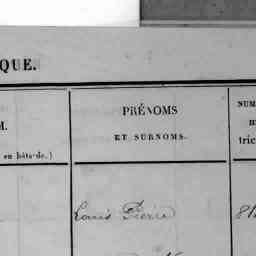 QUE.
PRÉNOMS
ET SURNOMS.
NUM
M.
tric
en bâts-de.)
Louis Pierre
81